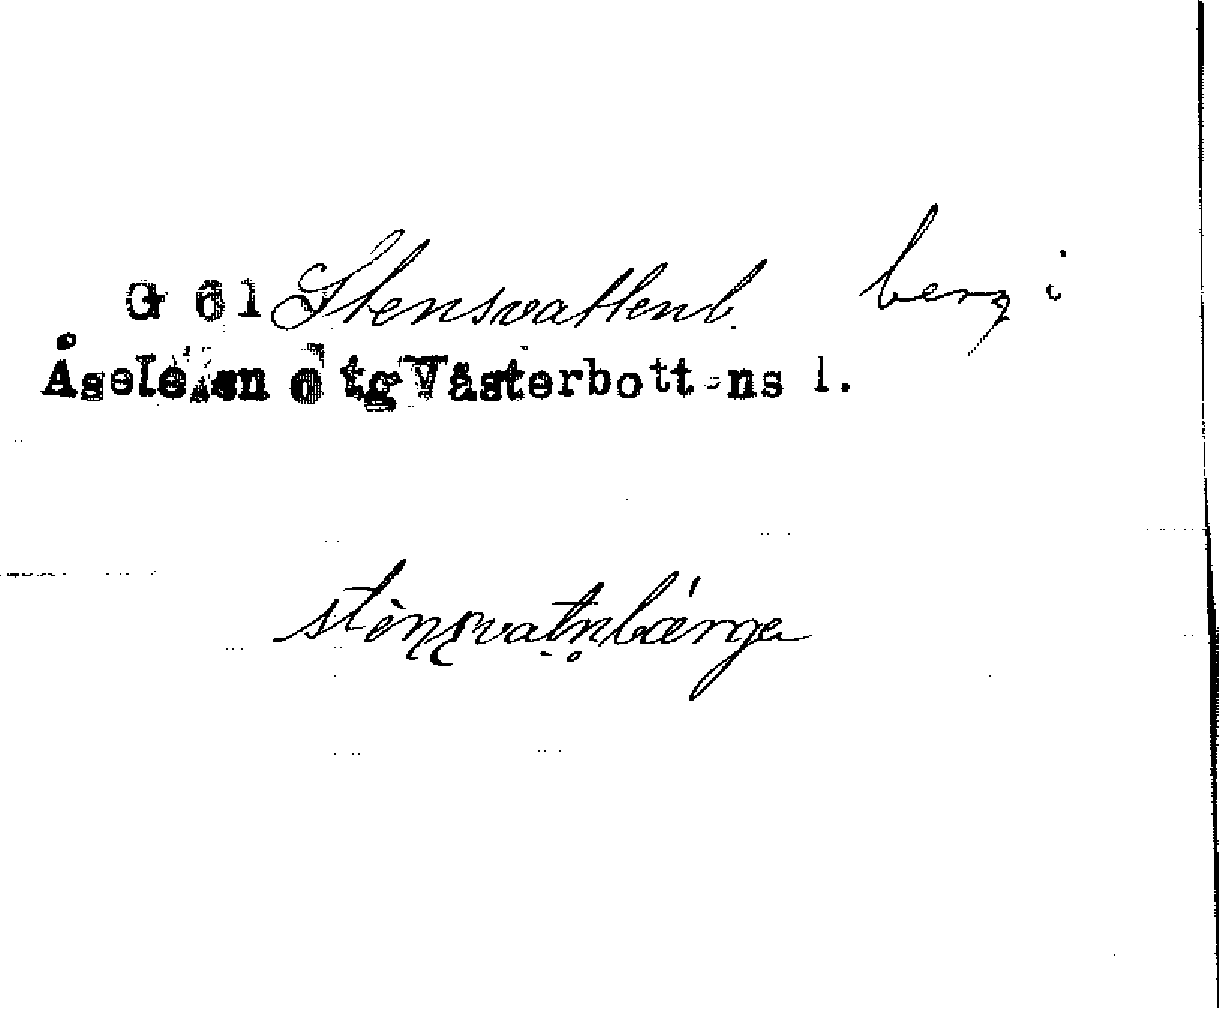 G 61 Stensvattenb. berg i
Åsele sn o tg Västerbottens l.
stènsvatnbærga